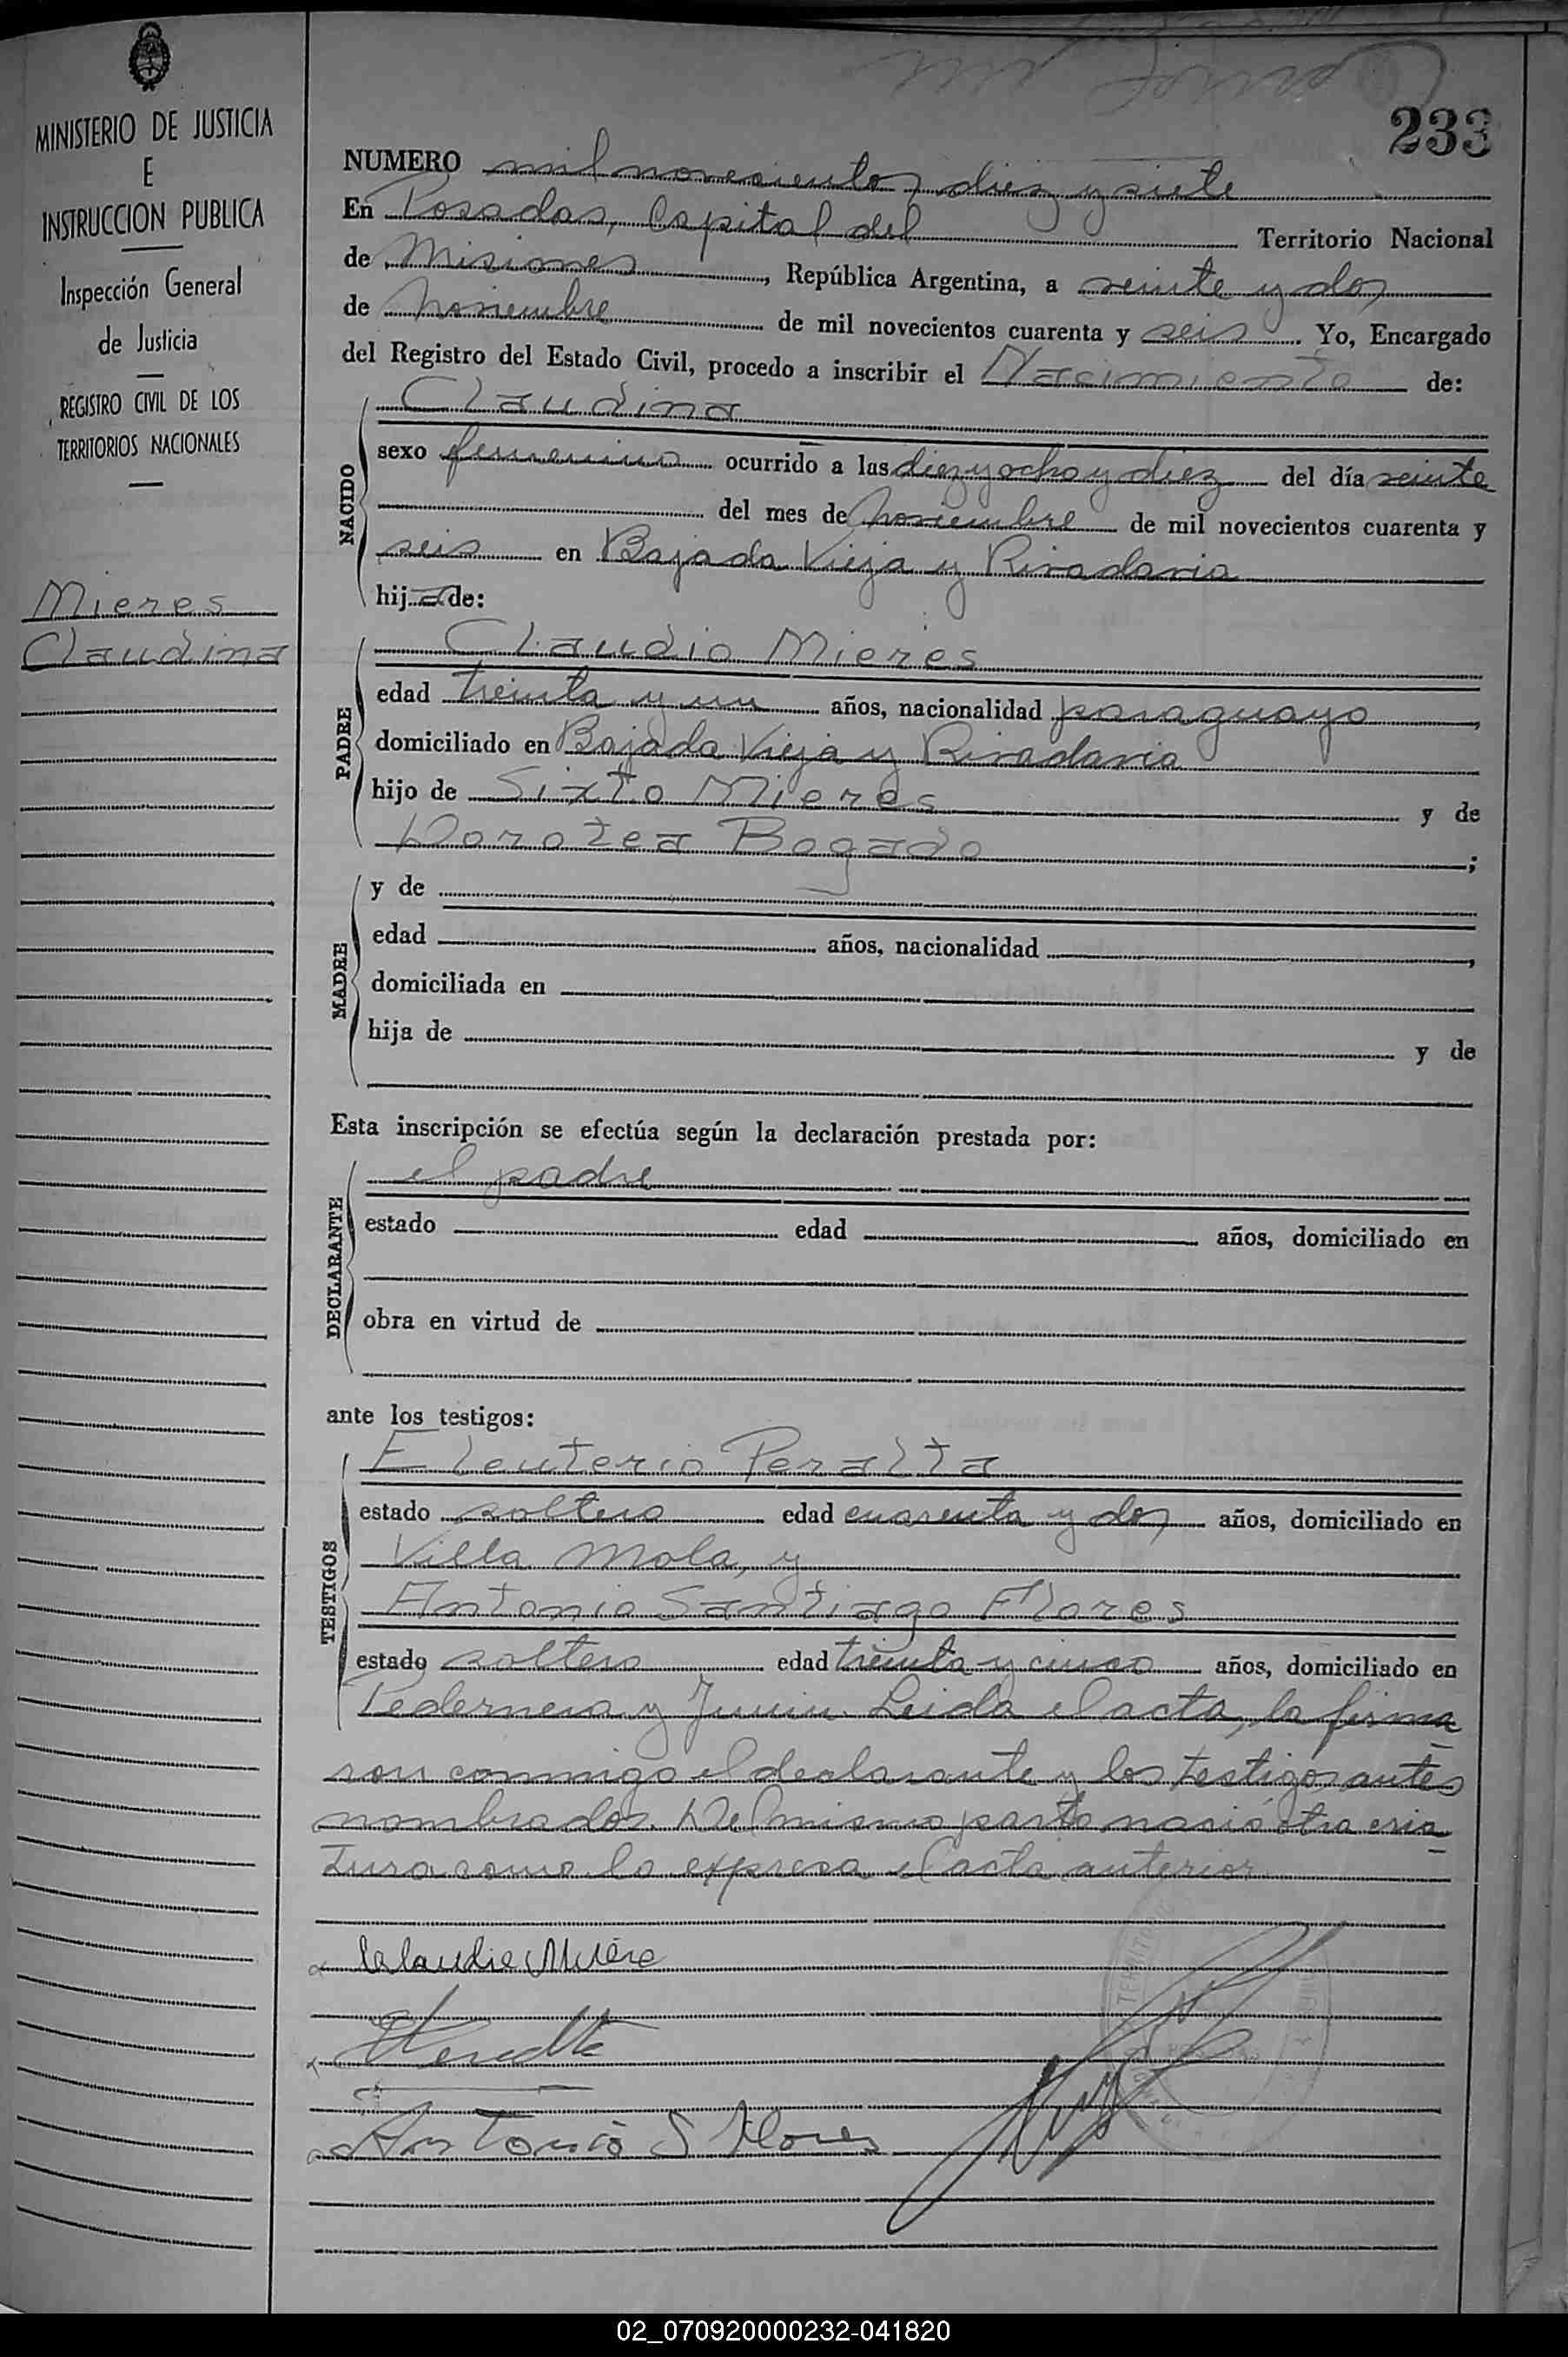 MINISTERIO DE JUSTICIA
E
INSTRUCCION PUBLICA
Inspección General
de Justicia
REGISTRO CIVIL DE LOS
TERRITORIOS NACIONALES
Mieres
Claudina
233
NUMERO mil novecientos diez y siete
En Posadas, Capital del Territorio Nacional
de Misiones, República Argentina, a veinte y dos
de noviembre de mil novecientos cuarenta y seis. Yo, Encargado
del Registro del Estado Civil, procedo a inscribir el Nacimiento de:
NACIDO
Claudina
sexo femenino ocurrido a las diez y ocho y diez del día veinte
del mes de noviembre de mil novecientos cuarenta y
seis en Bajada Vieja y Rivadavia
hija de:
PADRE
Claudio Mieres
edad treinta y un años, nacionalidad paraguayo,
domiciliado en Bajada Vieja y Rivadavia
hijo de Sixto Mieres y de
Dorotea Bogado;
MADRE
y de
edad años, nacionalidad,
domiciliada en
hija de y de
Esta inscripción se efectúa según la declaración prestada por:
DECLARANTE
el padre
estado edad años, domiciliado en
obra en virtud de
ante los testigos:
TESTIGOS
Eleuterio Peralta
estado soltero edad cuarenta y dos años, domiciliado en
Villa Mola, y
Antonio Santiago Flores
estado soltero edad treinta y cinco años, domiciliado en
Pedernera y Junin. Leida el acta, la firma
ron conmigo el declarante y los testigos antes
nombrados. Del mismo parto nació otra cria
tura como lo expresa el acta anterior
Claudio Miere
Antonio S Flores
02_070920000232-041820